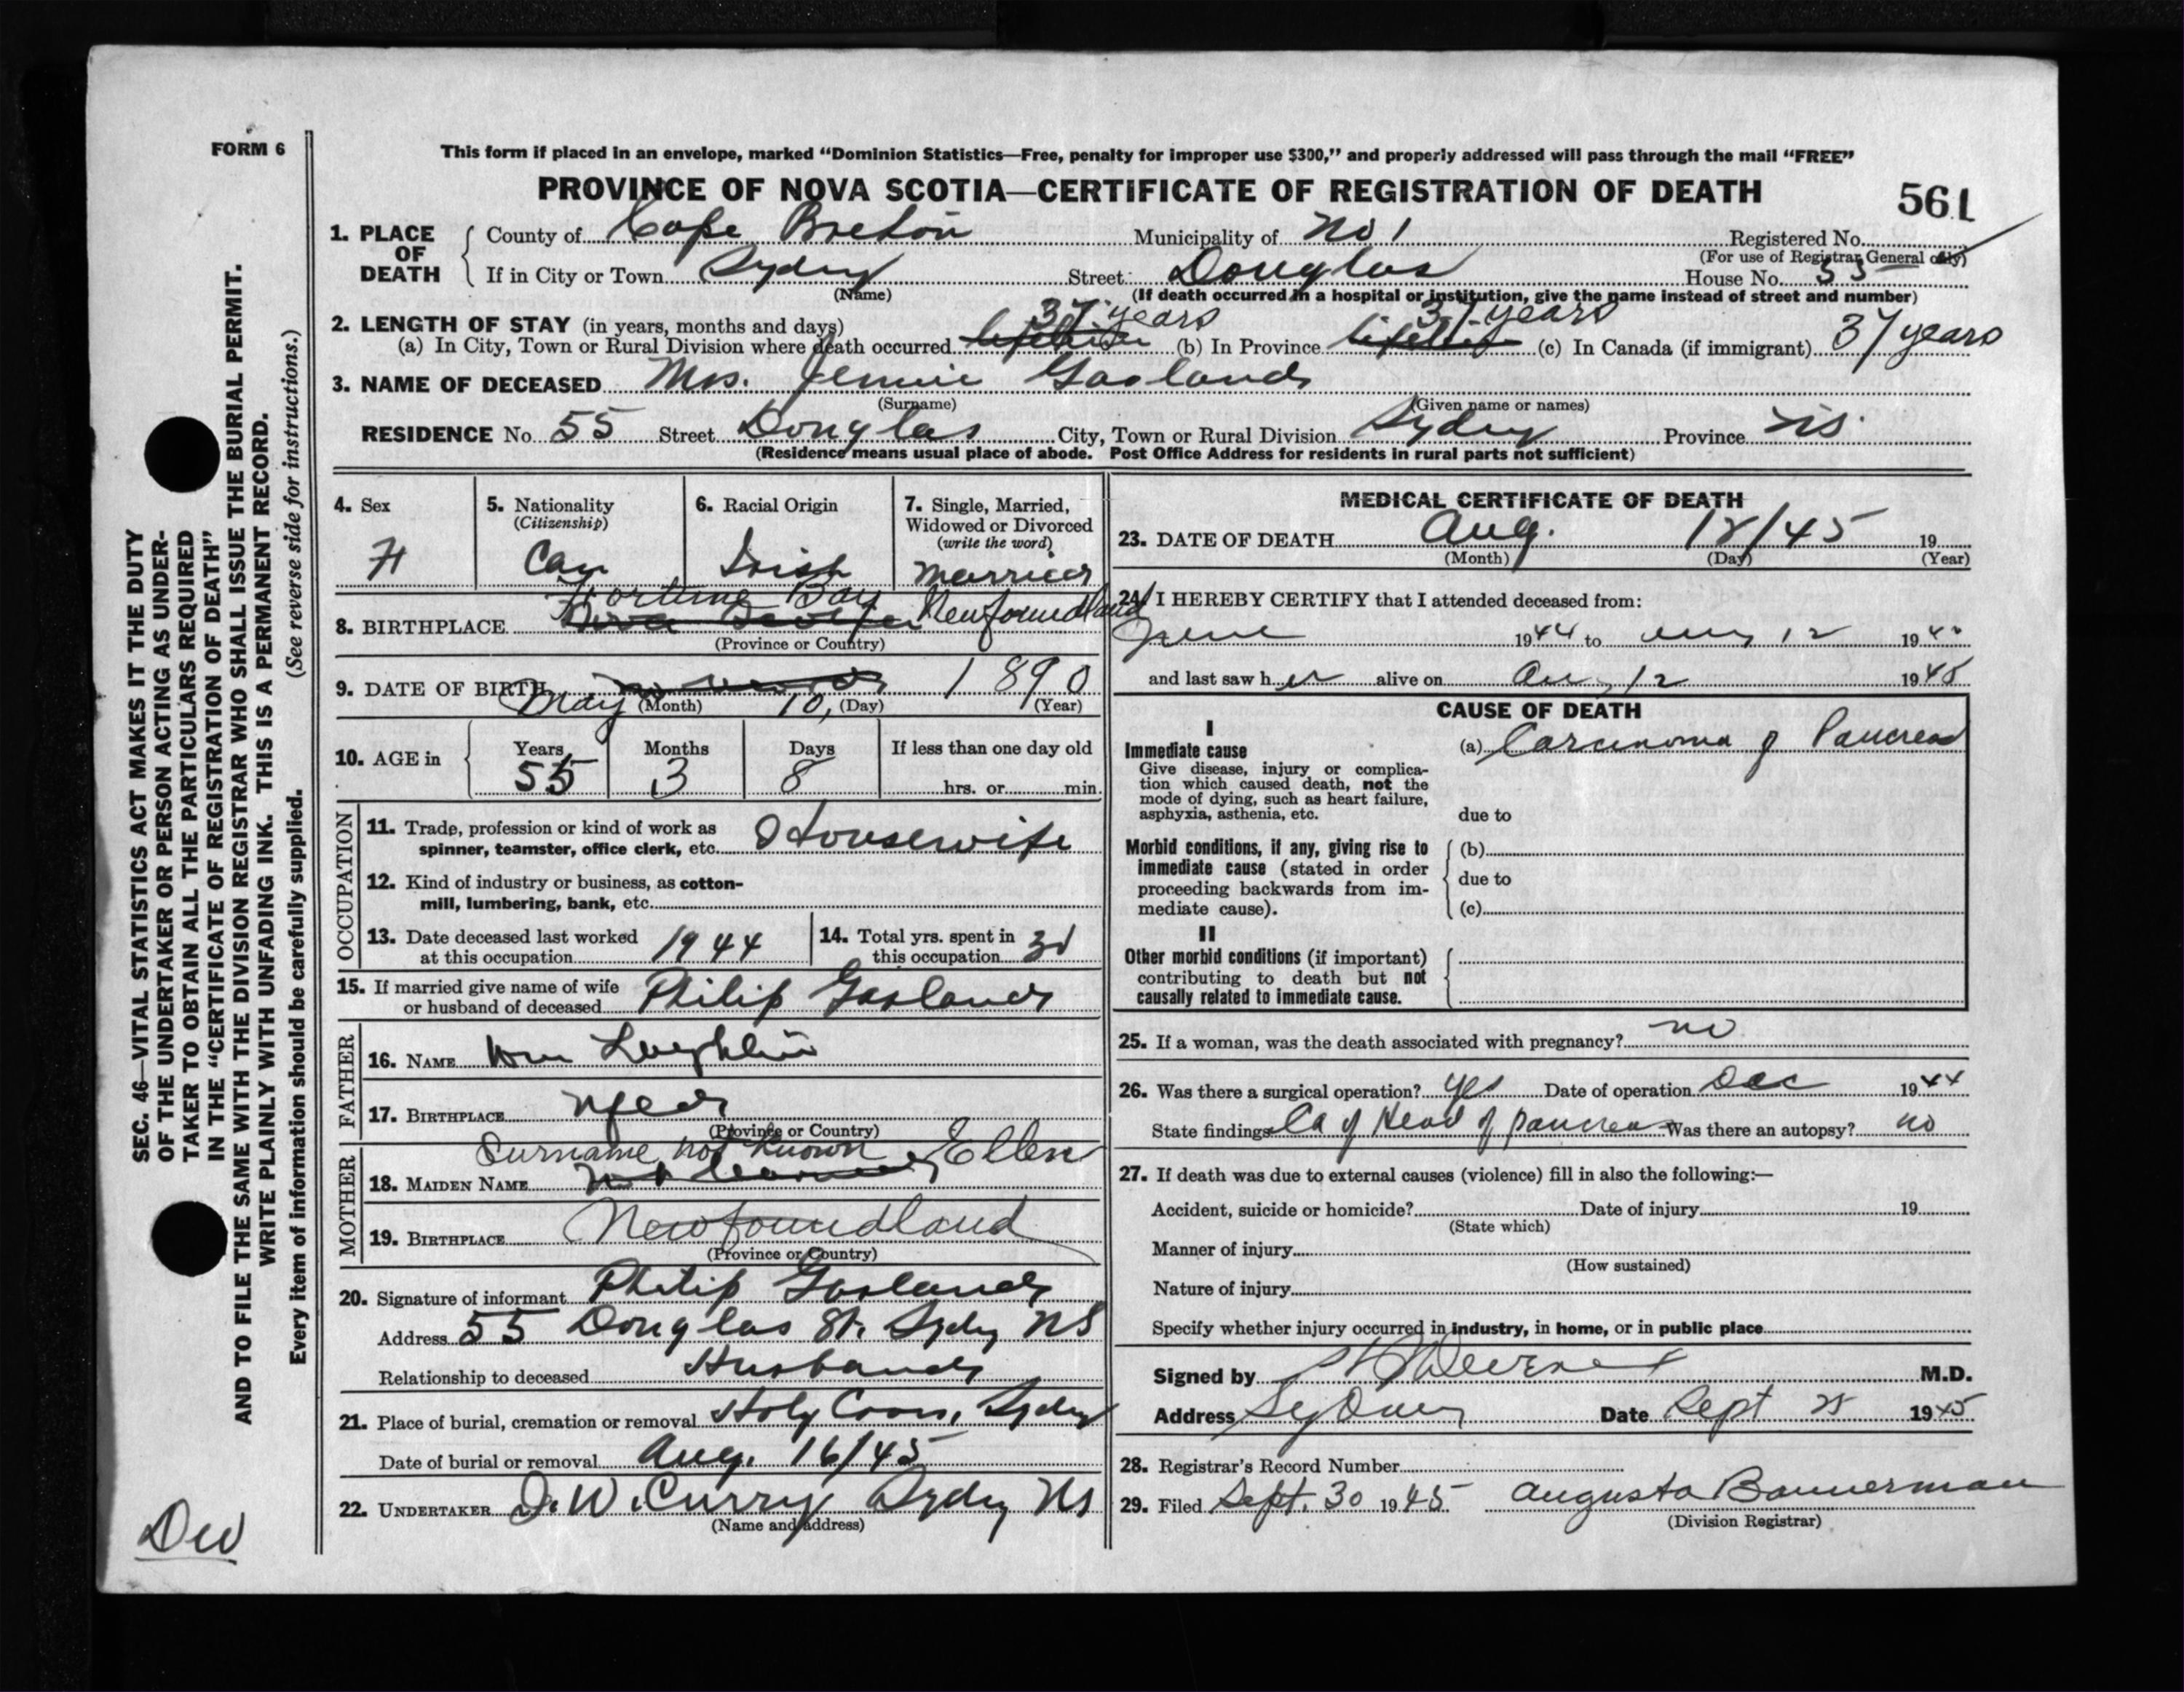 FORM 6
This form if placed in an envelope, marked “Dominion Statistics—Free, penalty for improper use $300,” and properly addressed will pass through the mail “FREE”
PROVINCE OF NOVA SCOTIA—CERTIFICATE OF REGISTRATION OF DEATH
561
1. PLACE OF DEATH
County of Cape Breton Municipality of No 1 Registered No.
(For use of Registrar General only)
If in City or Town Sydney Street Douglas House No. 55
(Name) (If death occurred in a hospital or institution, give the name instead of street and number)
2. LENGTH OF STAY (in years, months and days) 37 years 37 years
(a) In City, Town or Rural Division where death occurred lifetime (b) In Province lifetime (c) In Canada (if immigrant) 37 years
3. NAME OF DECEASED Mrs. Jennie Garland
(Surname) (Given name or names)
RESIDENCE No. 55 Street Douglas City, Town or Rural Division Sydney Province NS.
(Residence means usual place of abode. Post Office Address for residents in rural parts not sufficient)
4. Sex
F
5. Nationality
(Citizenship)
Can
6. Racial Origin
Irish
7. Single, Married, Widowed or Divorced
(write the word)
Married
Fortune Bay
8. BIRTHPLACE Nova Scotia Newfoundland
(Province or Country)
9. DATE OF BIRTH May 10, 1890
(Month) (Day) (Year)
10. AGE in
Years 55
Months 3
Days 8
If less than one day old
hrs. or min.
OCCUPATION
11. Trade, profession or kind of work as
spinner, teamster, office clerk, etc. Housewife
12. Kind of industry or business, as cotton-
mill, lumbering, bank, etc.
13. Date deceased last worked
at this occupation 1944
14. Total yrs. spent in
this occupation
15. If married give name of wife
or husband of deceased Philip Garland
FATHER
16. NAME Wm Loughlin
17. BIRTHPLACE Nfed
(Province or Country)
MOTHER
Surname not known Ellen
18. MAIDEN NAME
19. BIRTHPLACE Newfoundland
(Province or Country)
20. Signature of informant Philip Garland
Address 55 Douglas St. Sydney NS
Relationship to deceased Husband
21. Place of burial, cremation or removal Holy Cross, Sydney
Date of burial or removal Aug. 16/45
22. UNDERTAKER D. W. Curry Sydney NS
(Name and address)
MEDICAL CERTIFICATE OF DEATH
23. DATE OF DEATH Aug. 18/45 19
(Month) (Day) (Year)
24. I HEREBY CERTIFY that I attended deceased from:
June 1944 to Aug 12 19
and last saw her alive on Aug 12 1945
CAUSE OF DEATH
I
Immediate cause
Give disease, injury or complica-
tion which caused death, not the
mode of dying, such as heart failure,
asphyxia, asthenia, etc.
(a) Carcinoma of Pancreas
due to
Morbid conditions, if any, giving rise to
immediate cause (stated in order
proceeding backwards from im-
mediate cause).
(b)
due to
(c)
II
Other morbid conditions (if important)
contributing to death but not
causally related to immediate cause.
25. If a woman, was the death associated with pregnancy? no
26. Was there a surgical operation? yes Date of operation Dec 1944
State findings Ca of Head of pancreas Was there an autopsy? no
27. If death was due to external causes (violence) fill in also the following:—
Accident, suicide or homicide? Date of injury 19
(State which)
Manner of injury
(How sustained)
Nature of injury
Specify whether injury occurred in industry, in home, or in public place
Signed by M.D.
Address Sydney Date Sept 25 1945
28. Registrar's Record Number
29. Filed Sept. 30 1945 Augusta Bannerman
(Division Registrar)
SEC. 46—VITAL STATISTICS ACT MAKES IT THE DUTY
OF THE UNDERTAKER OR PERSON ACTING AS UNDER-
TAKER TO OBTAIN ALL THE PARTICULARS REQUIRED
IN THE “CERTIFICATE OF REGISTRATION OF DEATH”
AND TO FILE THE SAME WITH THE DIVISION REGISTRAR WHO SHALL ISSUE THE BURIAL PERMIT.
WRITE PLAINLY WITH UNFADING INK. THIS IS A PERMANENT RECORD.
Every item of information should be carefully supplied. (See reverse side for instructions.)